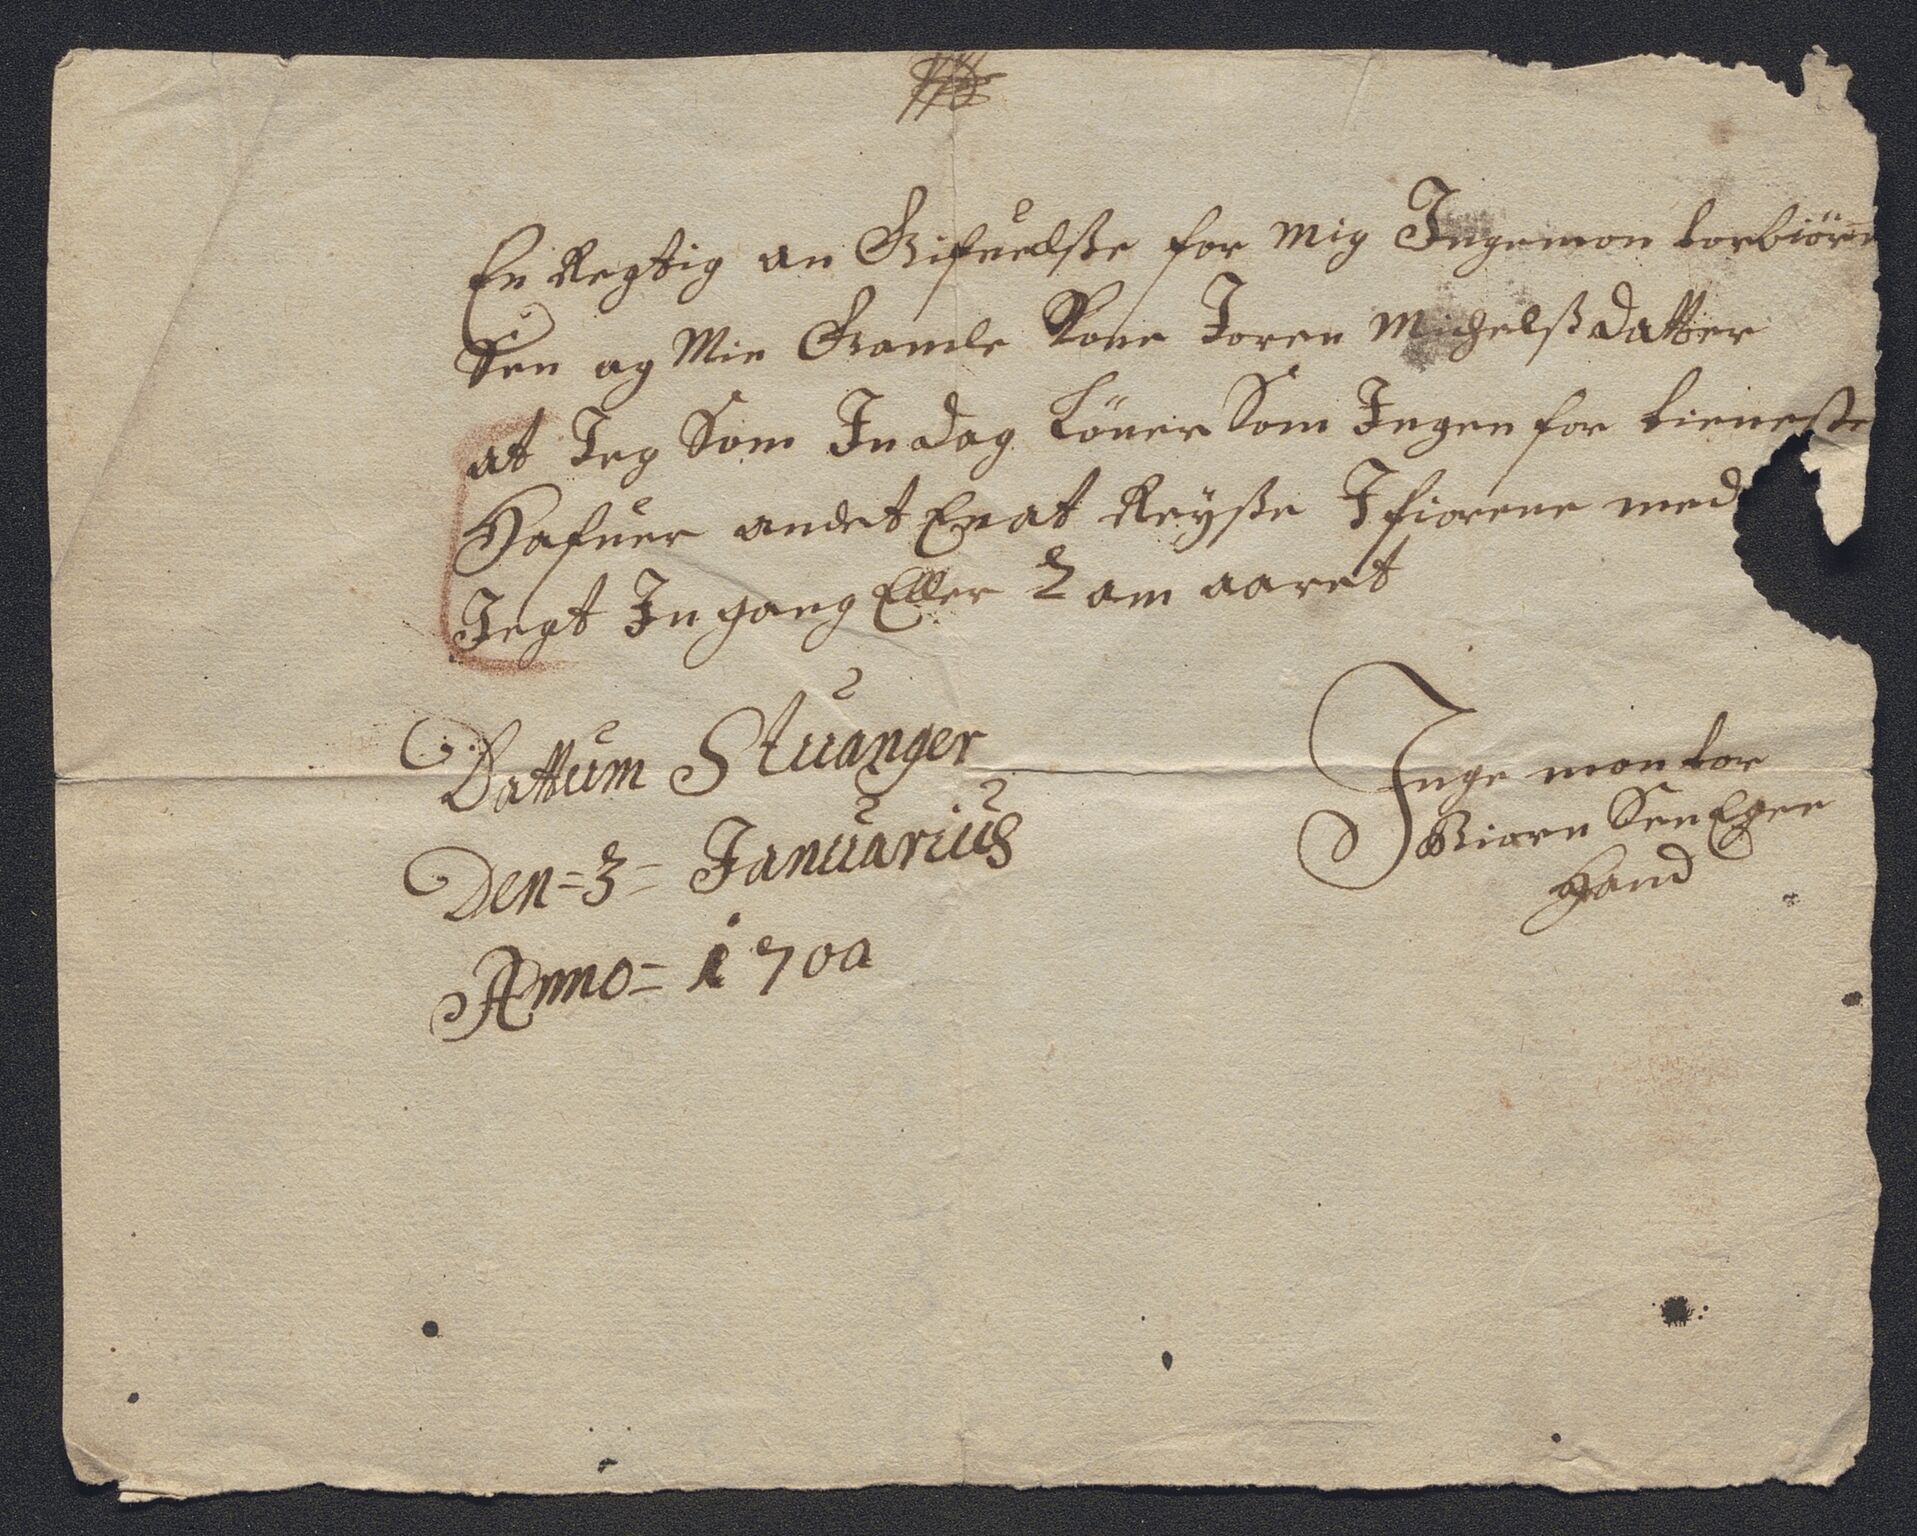 En Regtig an Gifuelsße for Mig Ingemon torbiörn
Sen og Min Gamle Kone Joren Michelsß datter
at Jeg Som In dag Löner Som Ingen for tieneste
Hafuer andet En at Reyße I fiorene med
Jegt In gang Eller 2 am aaret
Dattum Stuanger
Den = 3 = Januarius
Anno = 1700
Inge mon tor
Biorn Sen Egen
Hand